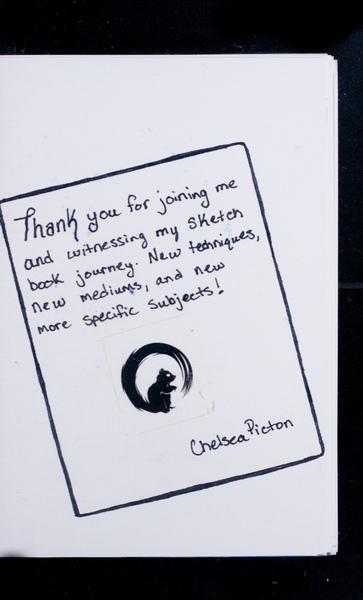 Thank you for joining me
and witnessing my sketch
book journey. New techniques,
new mediums, and new
more specific subjects!
Chelsea Picton